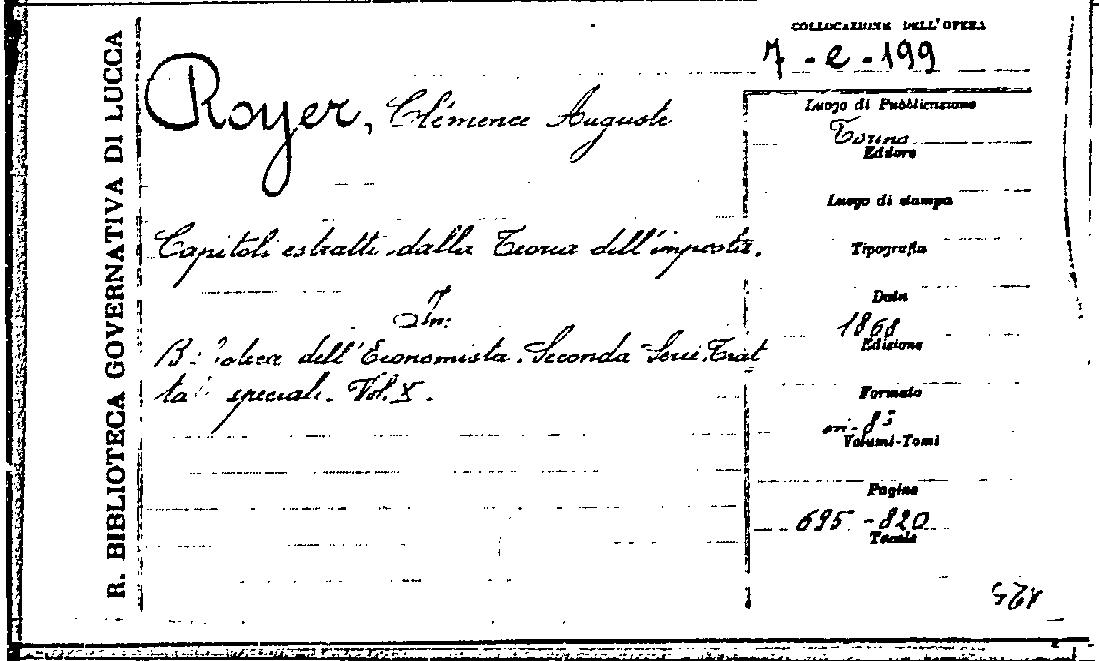 R. BIBLIOTECA GOVERNATIVA DI LUCCA
COLLOCAZIONE DELL'OPERA
7 - e - 199
Royer, Clémence Auguste
Capitoli estratti dalla Teoria dell'imposta.
In:
dell'Economista. Seconda Serie. Trat
speciali. Vol. X.
Luogo di Pubblicazione
Torino
Editore
Luogo di stampa
Tipografia
Data
1868
Edizione
Formato
in-8°
Volumi-Tomi
Pagine
695 - 820
Tavole